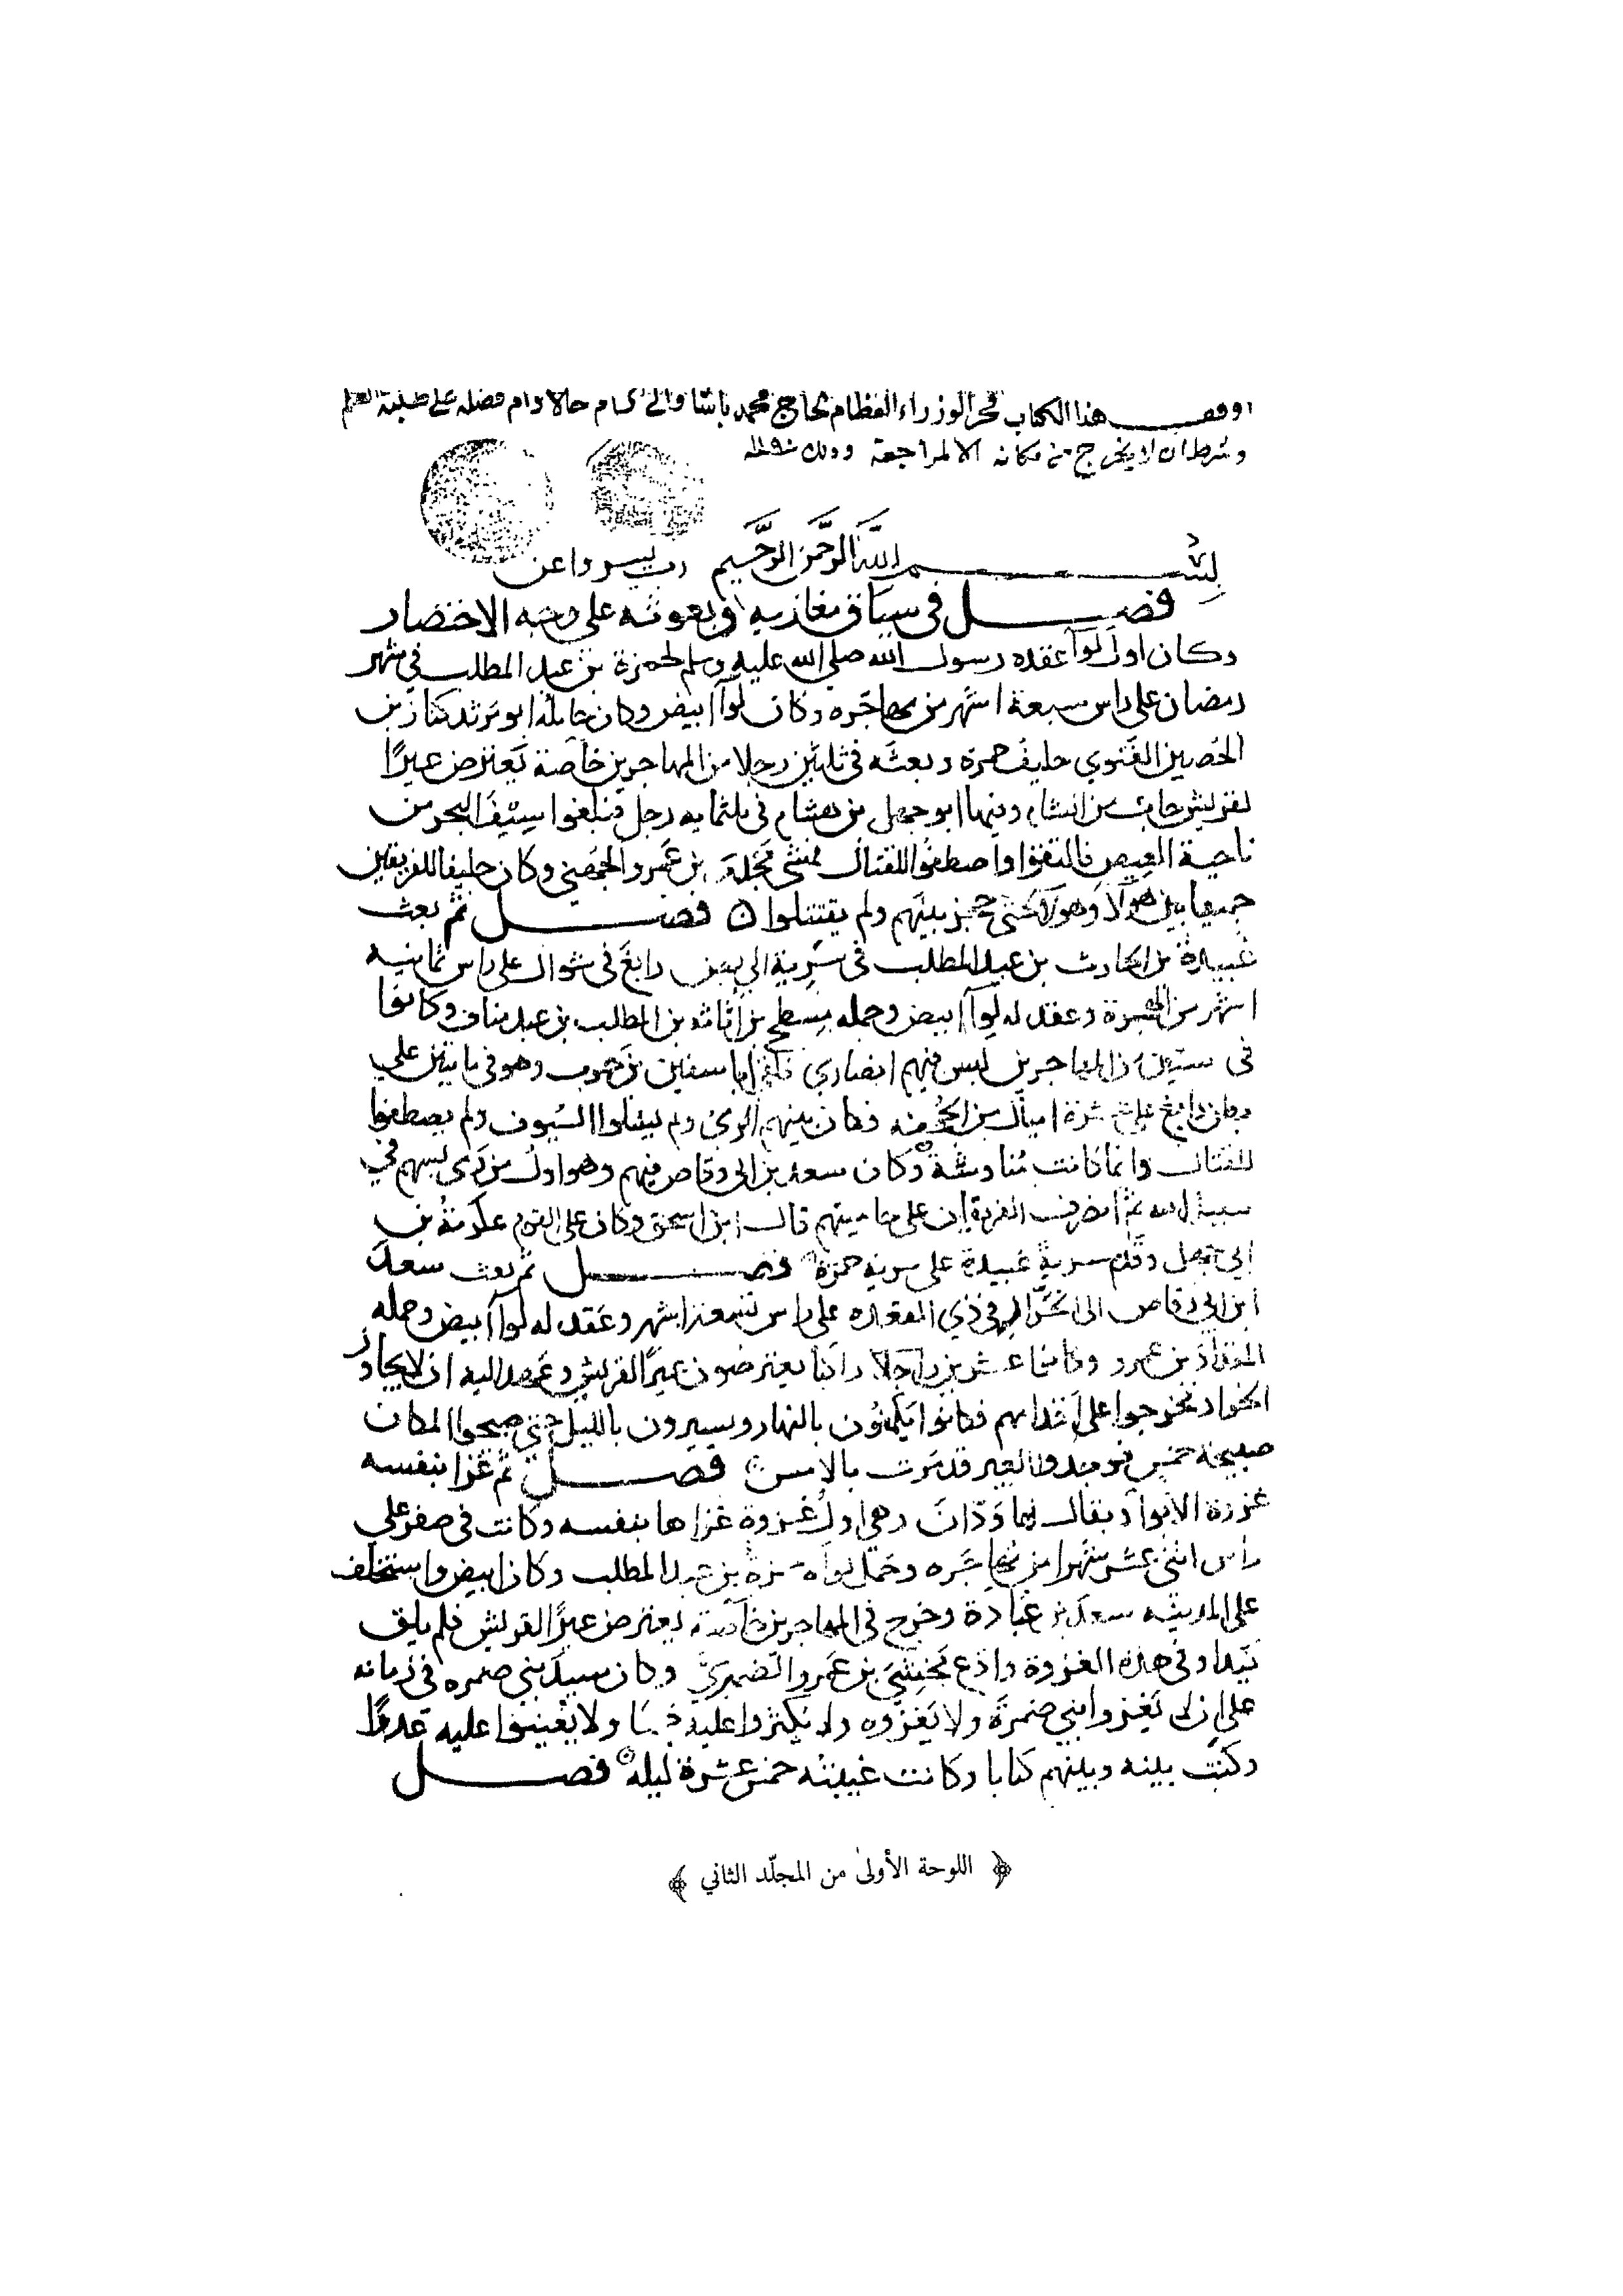 اوقف هذا الكتاب فخر الوزراء العظام الحاج محمد باشا والي الشام حالا دام فضله على طلبة العلم
وشرط ان لا يخرج من مكانه الا لمراجعة وذلك سنة
بسم الله الرحمن الرحيم رب يسر واعن
فصل في سياق مغازيه وبعوثه على وجه الاختصار
وكان اول لوآ عقده رسول الله صلى الله عليه وسلم لحمزة بن عبد المطلب في شهر
رمضان على راس سبعة اشهر من مهاجره وكان لوآ ابيض وكان حامله ابو مرثد كناز بن
الحُصين الغَنوي حليف حمزة وبعثه في ثلثين رجلا من المهاجرين خاصة يَعترض عيرًا
لقريش جات من الشام وفيها ابو جهل بن هشام في ثلثمايه رجل فبلغوا سِيْفَ البحر من
ناحية العِيص فالتقوا واصطفوا للقتال فمشى مَجْدي بن عَمرو الجهَني وكان حليفا للفريقين
جميعا بين هولآ وهولآ حتى حجز بينهم ولم يقتتلوا ن فصل ثم بعث
عُبيدة بن الحارث بن عبد المطلب في سَرية الى بطن رابغ في شوال على راس ثمانيه
اشهر من الهجرة وعقد له لوآ ابيض وحمله مِسطح بن اثاثه بن المطلب بن عبد مناف وكانوا
في ستين من المهاجرين ليس فيهم انصاري فلقي ابا سفين بن حرب وهو في مايتين على
بطن رابغ على عشرة اميال من الجُحفه وكان بينهم الرمي ولم يسلوا السيوف ولم يصطفوا
للقتال وانما كانت مُناوشة وكان سعد بن ابي وقاص فيهم وهو اول من رَمى بسهم في
سبيل الله ثم انصرف الفريقان على حاميتهم قال ابن اسحق وكان على القوم عكرمة بن
ابي جهل وقدم سرية عُبيدة على سرية حمزة فصل ثم بعث سعد
ابن ابي وقاص الى الخَرّار في ذي القعده على راس تسعة اشهر وعَقد له لوآ ابيض وحمله
المقداد بن عمرو وكانوا عشرين راجلا يعترضون عيرًا لقريش وعَهد اليه ان لا يجاوز
الخرار فخرجوا على اَقدامهم فكانوا يَكمنُون بالنهار ويسيرون بالليل حتى صبحوا المكان
صبيحة خمس فوجدوا العير قد مَرت بالامس فصل ثم غزا بنفسه
غزوة الابوآ ويقال لها وَدّانَ وهي اول غزوة غزاها بنفسه وكانت في صفر على
راس اثني عشر شهرا من مُهاجَره وحَمل لوآه حمزة بن عبد المطلب وكان ابيض واستخلف
على المدينه سعد بن عُبادة وخرج في المهاجرين خاصة يعترض عيرًا لقريش فلم يلق
كيدا وفي هذه الغزوة وادَع مَخشيَّ بن عَمرو الضمري وكان سيد بني ضمره في زمانه
على ان لا يَغزوا بني ضمرة ولا يَغزوه ولا يكثروا عليه جمعا ولا يُعينوا عليه عدوًا
وكتبَ بينه وبينهم كتابا وكانت غيبته خمس عشرة ليله فصل
اللوحة الأولى من المجلّد الثاني